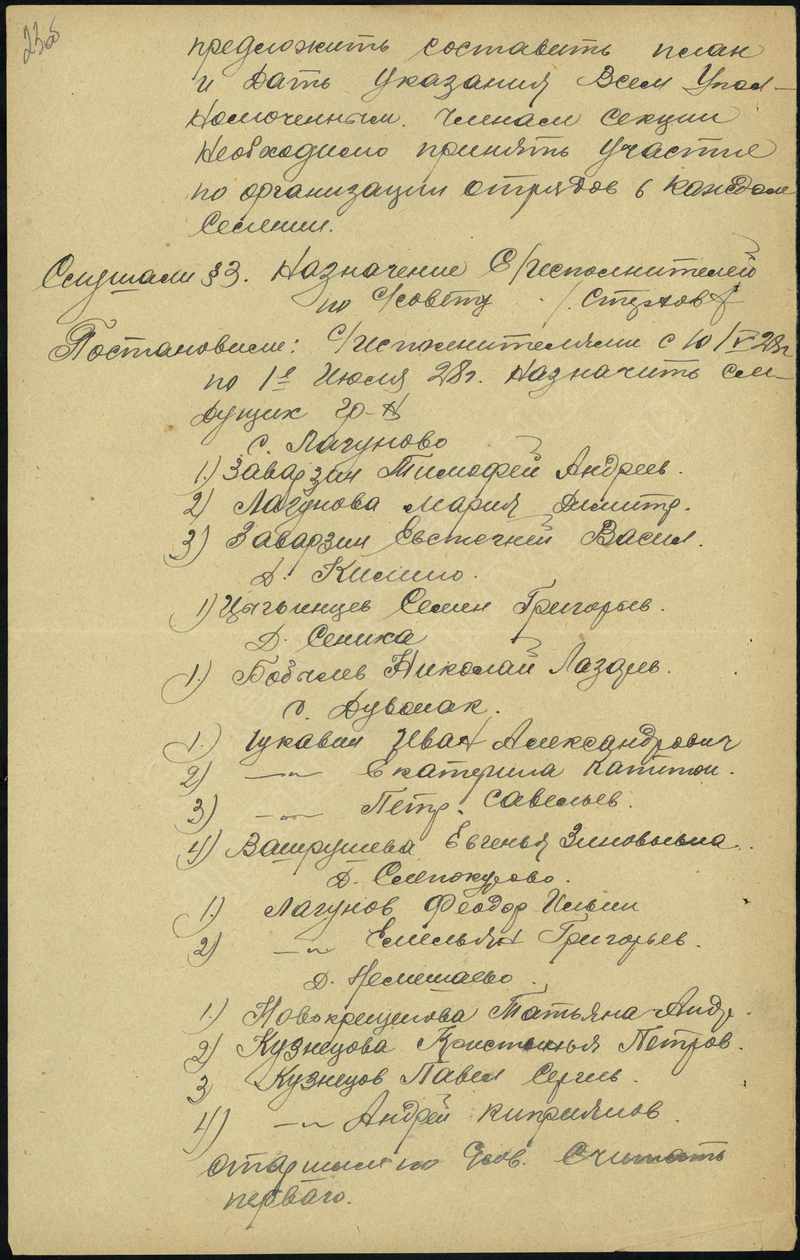 23об
предложить составить план
и дать указания всем упол-
номоченным. Членам секции
необходимо принять участие
по организации отрядов в каждом
селении.
Слушали §3. Назначение С/исполнителей
по С/совету /. Стрхов
Постановили: С/исполнителями с 10/V 28г
по 1е Июля 28г. назначить сле-
дущих гр-н
с. Лагуново
1.) Заварзин Тимофей Андреев.
2) Лагунова Мария Димитр.
3) Заварзин Евстегней Васил.
д. Килино.
1) Семен Григорьев.
д. Сеника
1.) Бобылев Николай Лазарев.
с. Дувомак.
1.) Щукавин Иван Александрович
2) —"— Екатерина Капитон.
3) —"— Петр. Савельев.
4) Вашрушева Евгенья Зиновьевна.
д. Слепокурово.
1.) Лагунов Феодор Ильин
2) —"— Емельян Григорьев.
д. Немешаево.
1.) Новокрещенова Татьяна Андр.
2) Кузнецова Констанья Петров.
3 Кузнецов Павел Сергев.
4) —"— Андрей Киприянов.
старшим по Сов. считать
перваго.